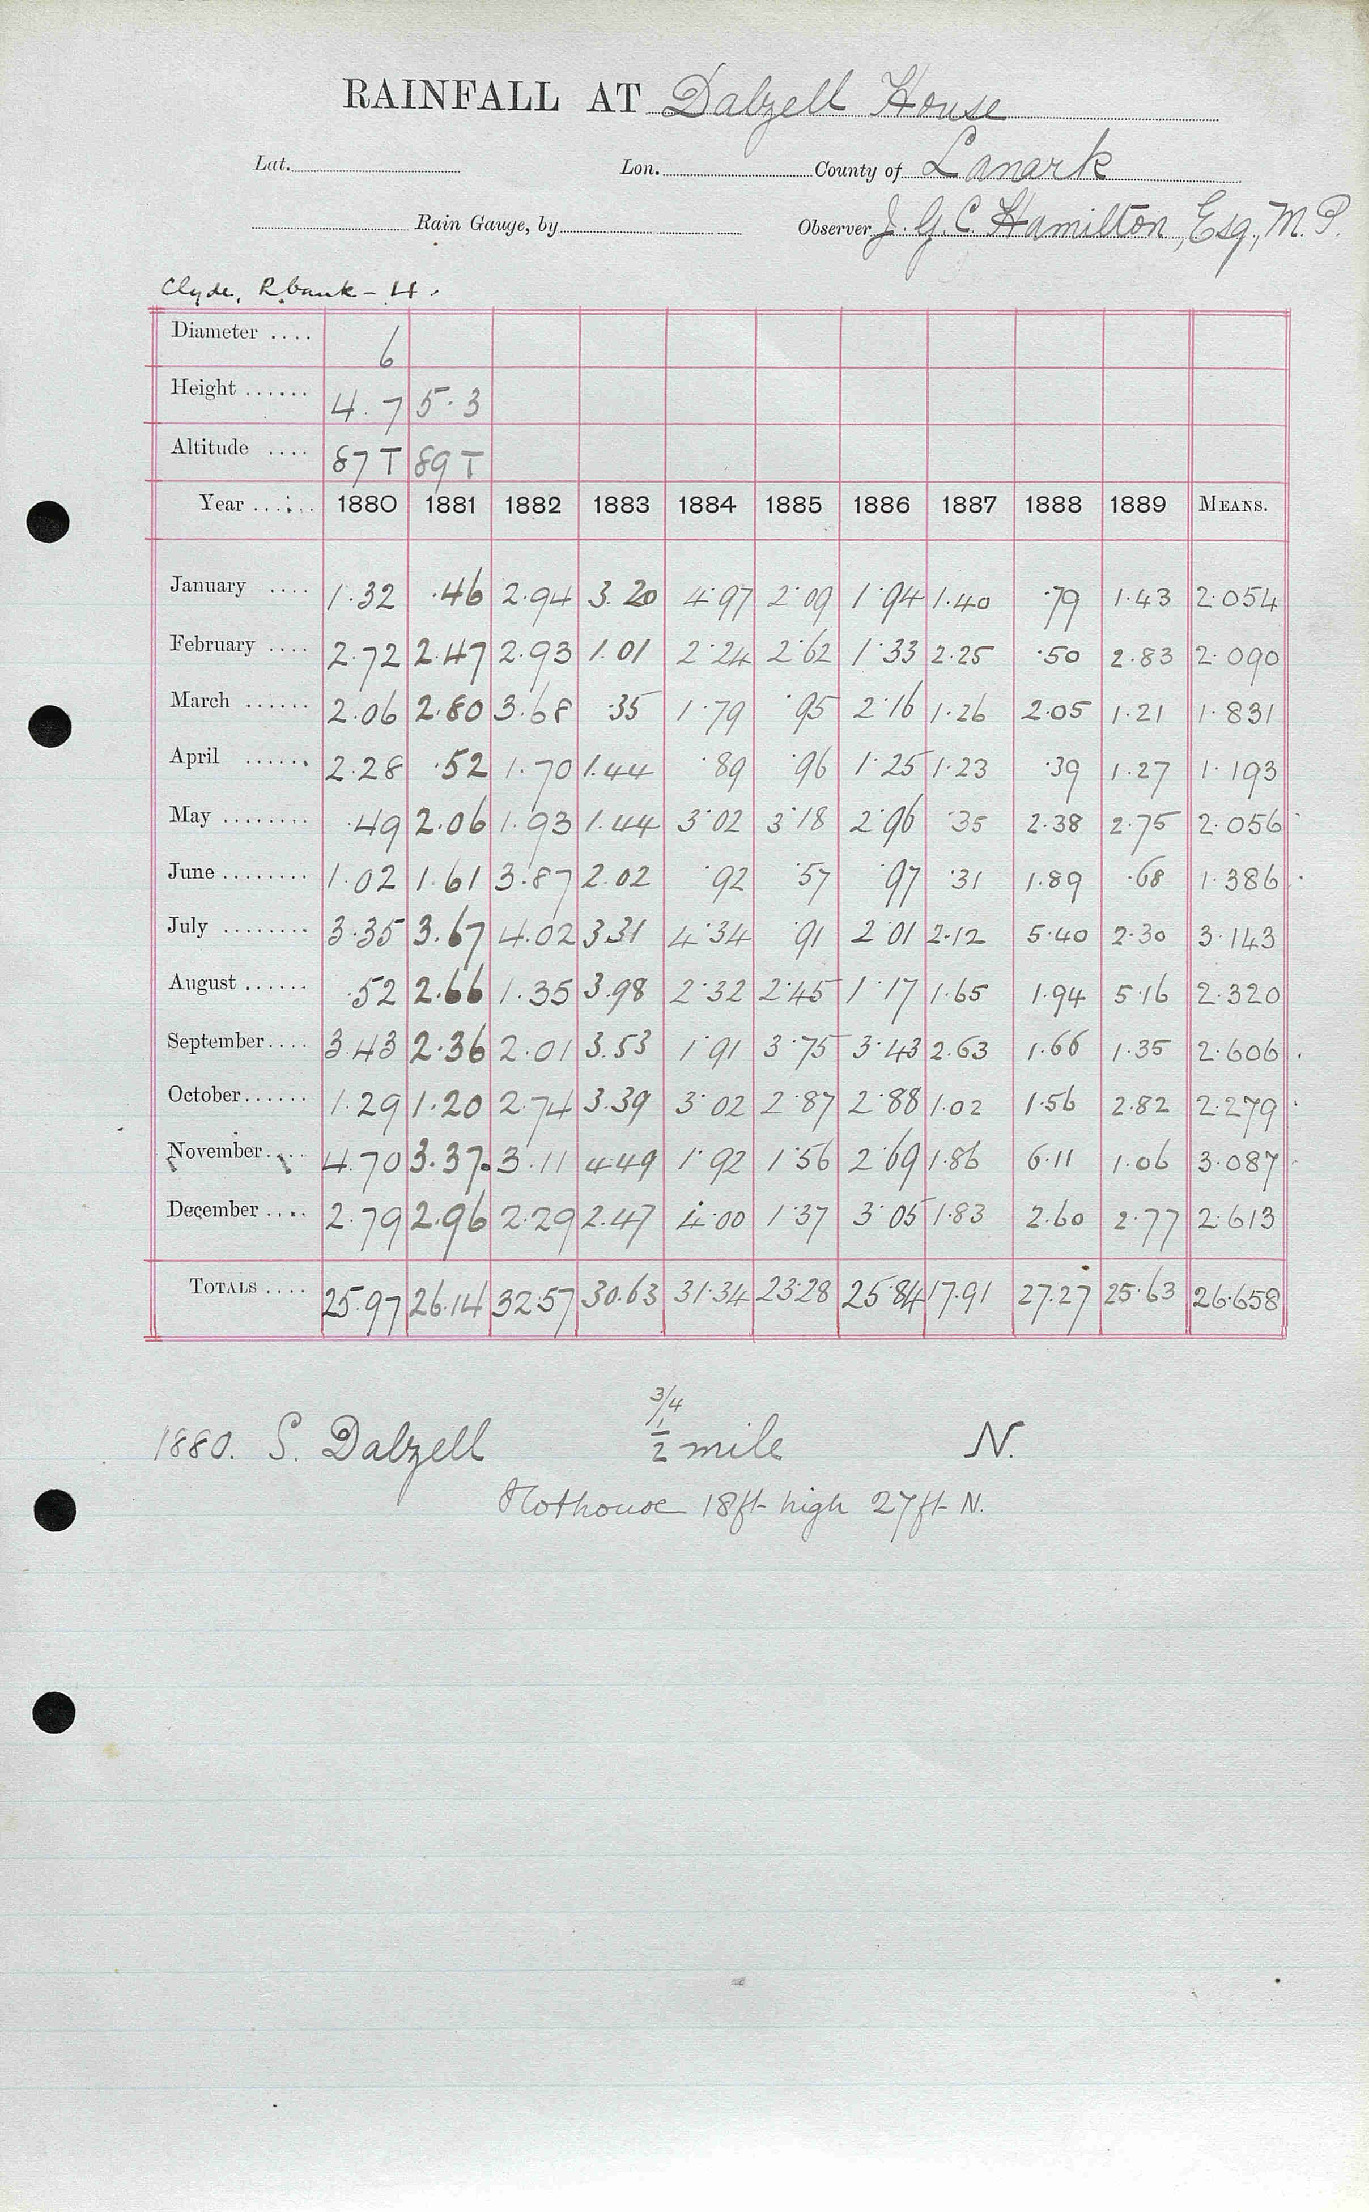 RAINFALL AT Dalzell House
Lat. Lon. County of Lanark
Rain Gauge, by Observer J. G. C. Hamilton, Esq., M.P.
Clyde, R. bank - 4.
Diameter .... 6
Height ...... 4.7 5.3
Altitude .... 87 T 89 T
Year ..... 1880 1881 1882 1883 1884 1885 1886 1887 1888 1889 MEANS.
January .... 1.32 .46 2.94 3.20 4.97 2.09 1.94 1.40 .79 1.43 2.054
February .... 2.72 2.47 2.93 1.01 2.24 2.62 1.33 2.25 .50 2.83 2.090
March ...... 2.06 2.80 3.68 .35 1.79 .95 2.16 1.26 2.05 1.21 1.831
April ...... 2.28 .52 1.70 1.44 .89 .96 1.25 1.23 .39 1.27 1.193
May ........ .49 2.06 1.93 1.44 3.02 3.18 2.96 .35 2.38 2.75 2.056
June ........ 1.02 1.61 3.87 2.02 .92 .57 .97 .31 1.89 .68 1.386
July ........ 3.35 3.67 4.02 3.31 4.34 .91 2.01 2.12 5.40 2.30 3.143
August ...... .52 2.66 1.35 3.98 2.32 2.45 1.17 1.65 1.94 5.16 2.320
September .... 3.43 2.36 2.01 3.53 1.91 3.75 3.43 2.63 1.66 1.35 2.606
October ...... 1.29 1.20 2.74 3.39 3.02 2.87 2.88 1.02 1.56 2.82 2.279
November .... 4.70 3.37 3.11 4.49 1.92 1.56 2.69 1.86 6.11 1.06 3.087
December .... 2.79 2.96 2.29 2.47 4.00 1.37 3.05 1.83 2.60 2.77 2.613
TOTALS .... 25.97 26.14 32.57 30.63 31.34 23.28 25.84 17.91 27.27 25.63 26.658
3/4
1880. S. Dalzell 1/2 mile N.
Hothouse 18 ft high 27 ft N.